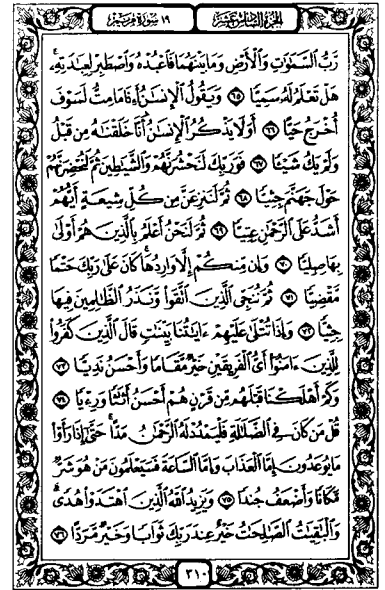 الجزء السادس عشر ١٩ سورة مريم
رَّبُّ ٱلسَّمَٰوَٰتِ وَٱلْأَرْضِ وَمَا بَيْنَهُمَا فَٱعْبُدْهُ وَٱصْطَبِرْ لِعِبَٰدَتِهِۦۚ
هَلْ تَعْلَمُ لَهُۥ سَمِيًّا ٦٥ وَيَقُولُ ٱلْإِنسَٰنُ أَءِذَا مَا مِتُّ لَسَوْفَ
أُخْرَجُ حَيًّا ٦٦ أَوَلَا يَذْكُرُ ٱلْإِنسَٰنُ أَنَّا خَلَقْنَٰهُ مِن قَبْلُ
وَلَمْ يَكُ شَيْـًٔا ٦٧ فَوَرَبِّكَ لَنَحْشُرَنَّهُمْ وَٱلشَّيَٰطِينَ ثُمَّ لَنُحْضِرَنَّهُمْ
حَوْلَ جَهَنَّمَ جِثِيًّا ٦٨ ثُمَّ لَنَنزِعَنَّ مِن كُلِّ شِيعَةٍ أَيُّهُمْ
أَشَدُّ عَلَى ٱلرَّحْمَٰنِ عِتِيًّا ٦٩ ثُمَّ لَنَحْنُ أَعْلَمُ بِٱلَّذِينَ هُمْ أَوْلَىٰ
بِهَا صِلِيًّا ٧٠ وَإِن مِّنكُمْ إِلَّا وَارِدُهَاۚ كَانَ عَلَىٰ رَبِّكَ حَتْمًا
مَّقْضِيًّا ٧١ ثُمَّ نُنَجِّى ٱلَّذِينَ ٱتَّقَوا۟ وَّنَذَرُ ٱلظَّٰلِمِينَ فِيهَا
جِثِيًّا ٧٢ وَإِذَا تُتْلَىٰ عَلَيْهِمْ ءَايَٰتُنَا بَيِّنَٰتٍ قَالَ ٱلَّذِينَ كَفَرُوا۟
لِلَّذِينَ ءَامَنُوٓا۟ أَىُّ ٱلْفَرِيقَيْنِ خَيْرٌ مَّقَامًا وَأَحْسَنُ نَدِيًّا ٧٣
وَكَمْ أَهْلَكْنَا قَبْلَهُم مِّن قَرْنٍ هُمْ أَحْسَنُ أَثَٰثًا وَرِءْيًا ٧٤
قُلْ مَن كَانَ فِى ٱلضَّلَٰلَةِ فَلْيَمْدُدْ لَهُ ٱلرَّحْمَٰنُ مَدًّاۚ حَتَّىٰٓ إِذَا رَأَوْا۟
مَا يُوعَدُونَ إِمَّا ٱلْعَذَابَ وَإِمَّا ٱلسَّاعَةَ فَسَيَعْلَمُونَ مَنْ هُوَ شَرٌّ
مَّكَانًا وَأَضْعَفُ جُندًا ٧٥ وَيَزِيدُ ٱللَّهُ ٱلَّذِينَ ٱهْتَدَوْا۟ هُدًىۗ
وَٱلْبَٰقِيَٰتُ ٱلصَّٰلِحَٰتُ خَيْرٌ عِندَ رَبِّكَ ثَوَابًا وَخَيْرٌ مَّرَدًّا ٧٦
٣١٠